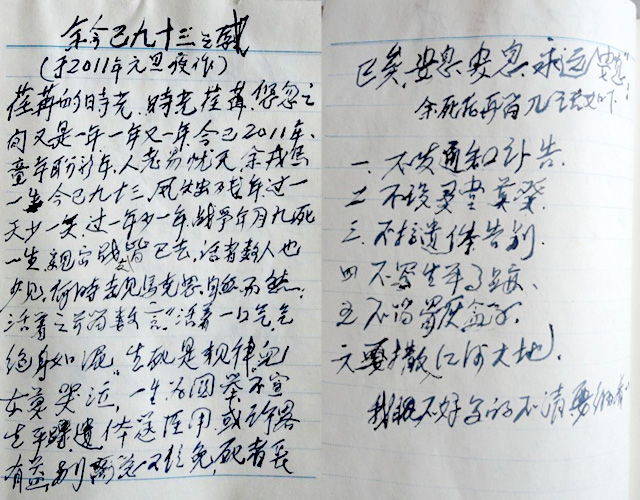 余今已九十三之感
(于2011年元旦夜作)
荏苒的时光,时光荏苒,倏忽之
间又是一年一年又一年,今已2011年、
童年盼新年,人老易忧天,余戎马
一生今已九十三,风烛残年过一
天少一天,过一年少一年,战争年月九死
一生,亲密战皆已去,活者数人也
少见,何时去见马克思,自然而然,
活着之前留数言"活着一口气,气
绝身如泥"生死是规律,
女莫哭泣,一生为国 不宣
生平 遗体送医用或许略
有益,别离 又难免,死者长
已矣,安息,安息,永远安息
余死后再留几言如下:
一、不发通知讣告、
二、不设灵堂
三、不搞遗体告别、
四、不写生平
五、不留骨灰盒
六、要撒江河大地、
我 不好 的不清要